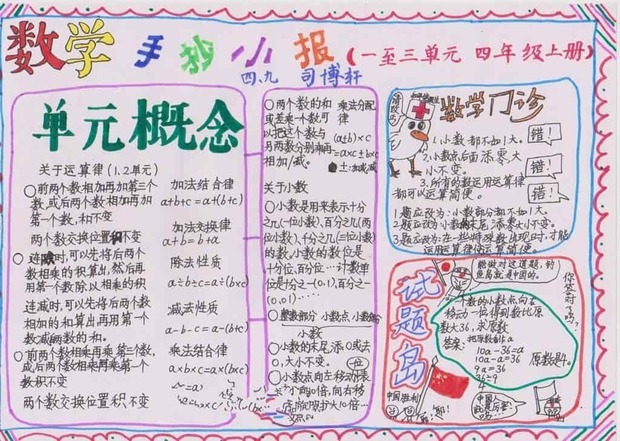 数学 手抄小报 (一至三单元 四年级上册)
四、九 司博轩
单元概念
关于运算律(1.2单元)
○前两个数相加再加第三个
数,或后两个数相加再加
第一个数,和不变
两个数交换位置积不变
连除时,可以先将后两个
数相乘的积算出,然后再
用第一个数除以相乘的积
连减时,可以先将后两个数
相加的和算出再用第一个
数减两数的和。
○前两个数相乘再乘第三个数,
或后两个数相乘再乘第一个
数积不变
两个数交换位置积不变
加法结合律
a+b+c=a+(b+c)
加法交换律
a+b=b+a
除法性质
a÷b÷c=a÷(b×c)
减法性质
a-b-c=a-(b+c)
乘法结合律
a×b×c=a×(b×c)
○两个数的和 乘法分配
或差乘一个数可 律
以把这个数与 (a±b)×c
另两数分别乘再 =a×c±b×c
相加/减。
关于小数
○小数是用来表示十分
之几(一位小数),百分之几(两
位小数),千分之几(三位小数)
的数,小数的数位是
十分位,百分位…计数单
位是十分之一(0.1),百分之一
(0.01)……
整数部分 小数点 小数部分
小数
○小数的末尾添0或去
0,大小不变。
数学门诊
1.小数都不如1大。 错!
2.小数点后面添零大
小不变。 错!
3.所有的数运用运算律
都可以运算简便。 错!
1题应改为:小数部分都不如1大。
2题应改为:小数末尾添零大小不变。
试题岛
能做对这道题,钓
鱼岛就是中国的。
你答对了吗?
一个数的小数点向右
移动一位得到数比原
数大36,求原数
答案:把原数看作a
10a-36=a
10a-a=36
9a=36
原数是4。
中国胜利